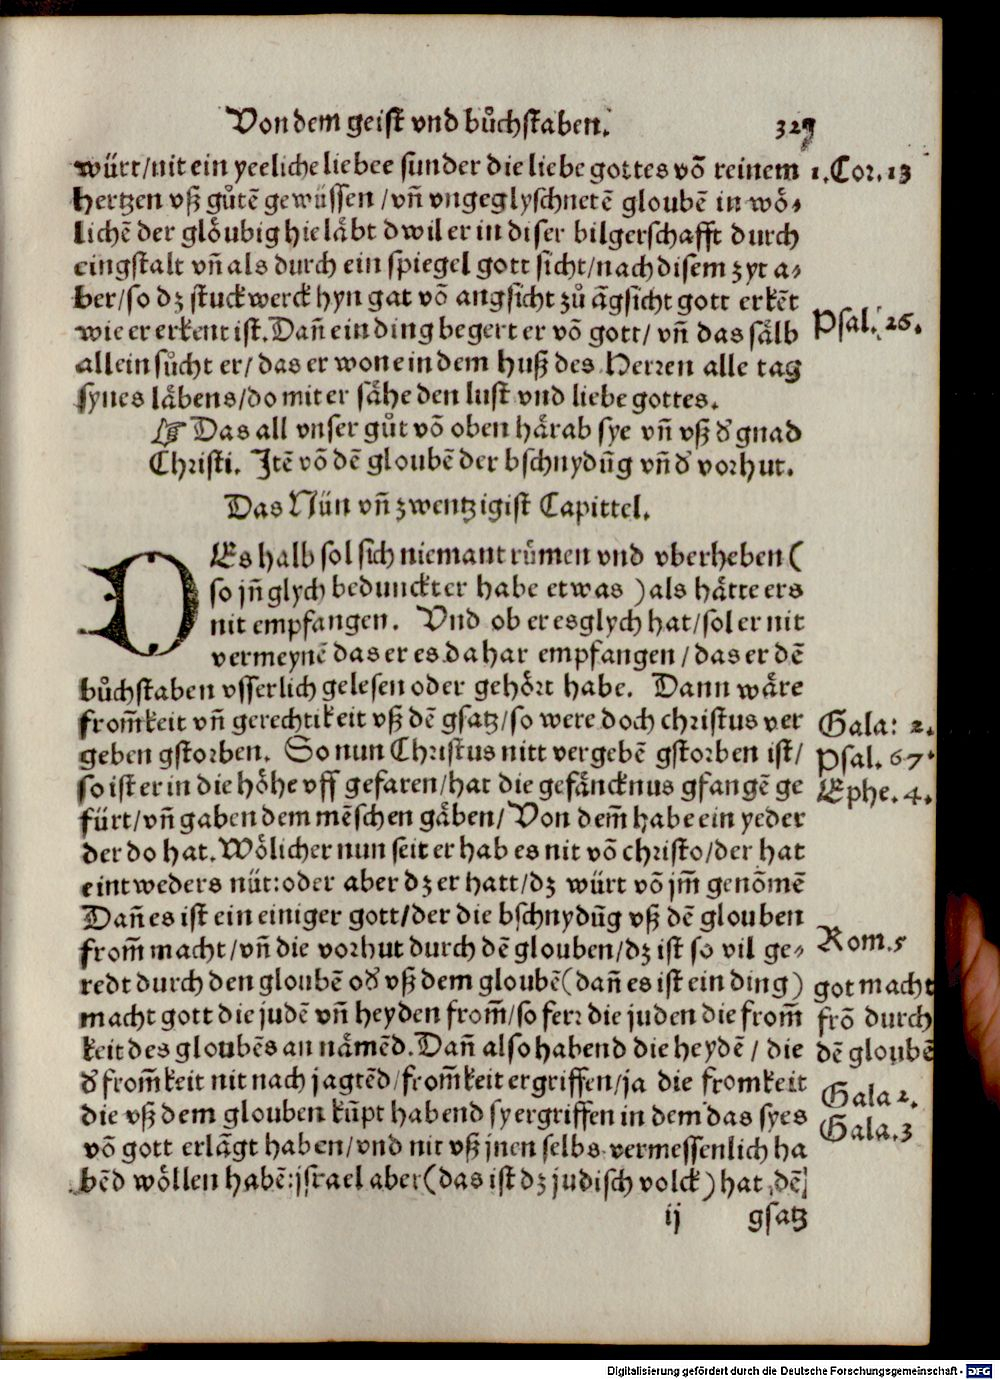 Von dem geist vnd bůchstaben. 327
würt/nit ein yeeliche liebee sunder die liebe gottes võ reinem 1.Cor.13
hertzen vß gůtē gewüssen /vñ vngeglyschnetē gloubē in wö⸗
lichē der glöubig hie läbt dwil er in diser bilgerschafft durch
eingstalt vñ als durch ein spiegel gott sicht/nach disem zyt a⸗
ber/so dz stuckwerck hyn gat võ angsicht zů ãgsicht gott erkēt
wie er erkent ist. Dañ ein ding begert er võ gott/ vñ das sälb Psal. 26.
allein sůcht er/ das er wone in dem huß des Herren alle tag
synes läbens/do mit er sähe den lust vnd liebe gottes.
☞ Das all vnser gůt võ oben härab sye vñ vß d̉ gnad
Christi. Itē võ dē gloubē der bschnydũg vñ d̉ vorhut.
Das Nün vñ zwentzigist Capittel.
DEs halb sol sich niemant růmen vnd vberheben (
so jñ glych bedunckt er habe etwas ) als hätte ers
nit empfangen. Vnd ob er es glych hat/sol er nit
vermeynē das er es da har empfangen /das er dē
bůchstaben vsserlich gelesen oder gehört habe. Dann wäre
from̃keit vñ gerechtikeit vß dē gsatz/so were doch christus ver Gala: 2.
geben gstorben. So nun Christus nitt vergebē gstorben ist/ Psal. 67.
so ist er in die höhe vff gefaren/hat die gefäncknus gfangē ge Ephe. 4.
fürt/vñ gaben dem mēschen gäben/Von dem̃ habe ein yeder
der do hat. Wölicher nun seit er hab es nit võ christo/der hat
eintweders nüt:oder aber dz er hatt/dz würt võ jm̃ genõmē
Dañ es ist ein einiger gott/der die bschnydũg vß dē glouben
from̃ macht/vñ die vorhut durch dē glouben/dz ist so vil ge⸗ Rom.5
redt durch den gloubē od̉ vß dem gloubē(dañ es ist ein ding) got macht
macht gott die judē vñ heyden from̃/so ferr die juden die from̃ frõ durch
keit des gloubēs an nämēd. Dañ also habend die heydē / die dē gloubē
d̉ from̃keit nit nach jagtēd/from̃keit ergriffen/ja die fromkeit Gala 2.
die vß dem glouben kũpt habend sy ergriffen in dem das syes Gala.3
võ gott erlãgt haben/vnd nit vß jnen selbs vermessenlich ha
bēd wöllen habē:jsrael aber(das ist dz judisch volck) hat dē
ij gsatz
Digitalisierung gefördert durch die Deutsche Forschungsgemeinschaft - DFG